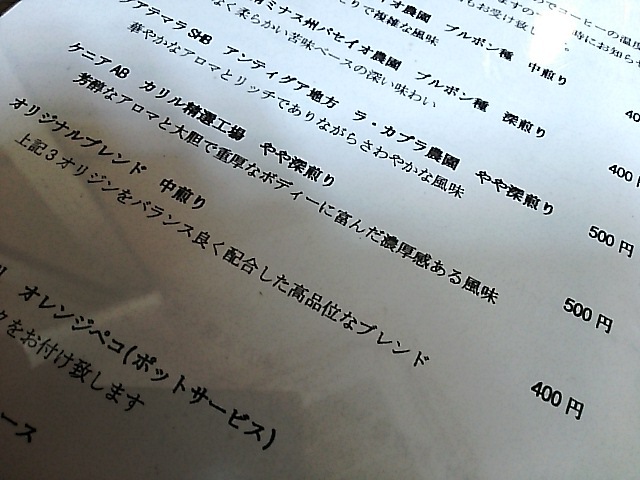 でコーヒーの温度
もお受け致し
時にお知ら
イオ農園 ブルボン種 中煎り
りで複雑な風味
ミナス州バセイオ農園 ブルボン種 深煎り
なく柔らかい苦味ベースの深い味わい 400
グアテマラSHB アンティグア地方 ラ・カプラ農園 やや深煎り 500円
華やかなアロマとリッチでありながらさわやかな風味
ケニアAB カリル精選工場 やや深煎り
芳醇なアロマと大胆で重厚なボディーに富んだ濃厚感ある風味 500円
オリジナルブレンド 中煎り
上記3オリジンをバランス良く配合した高品位なブレンド 400円
オレンジペコ(ポットサービス)
クをお付け致します
ース